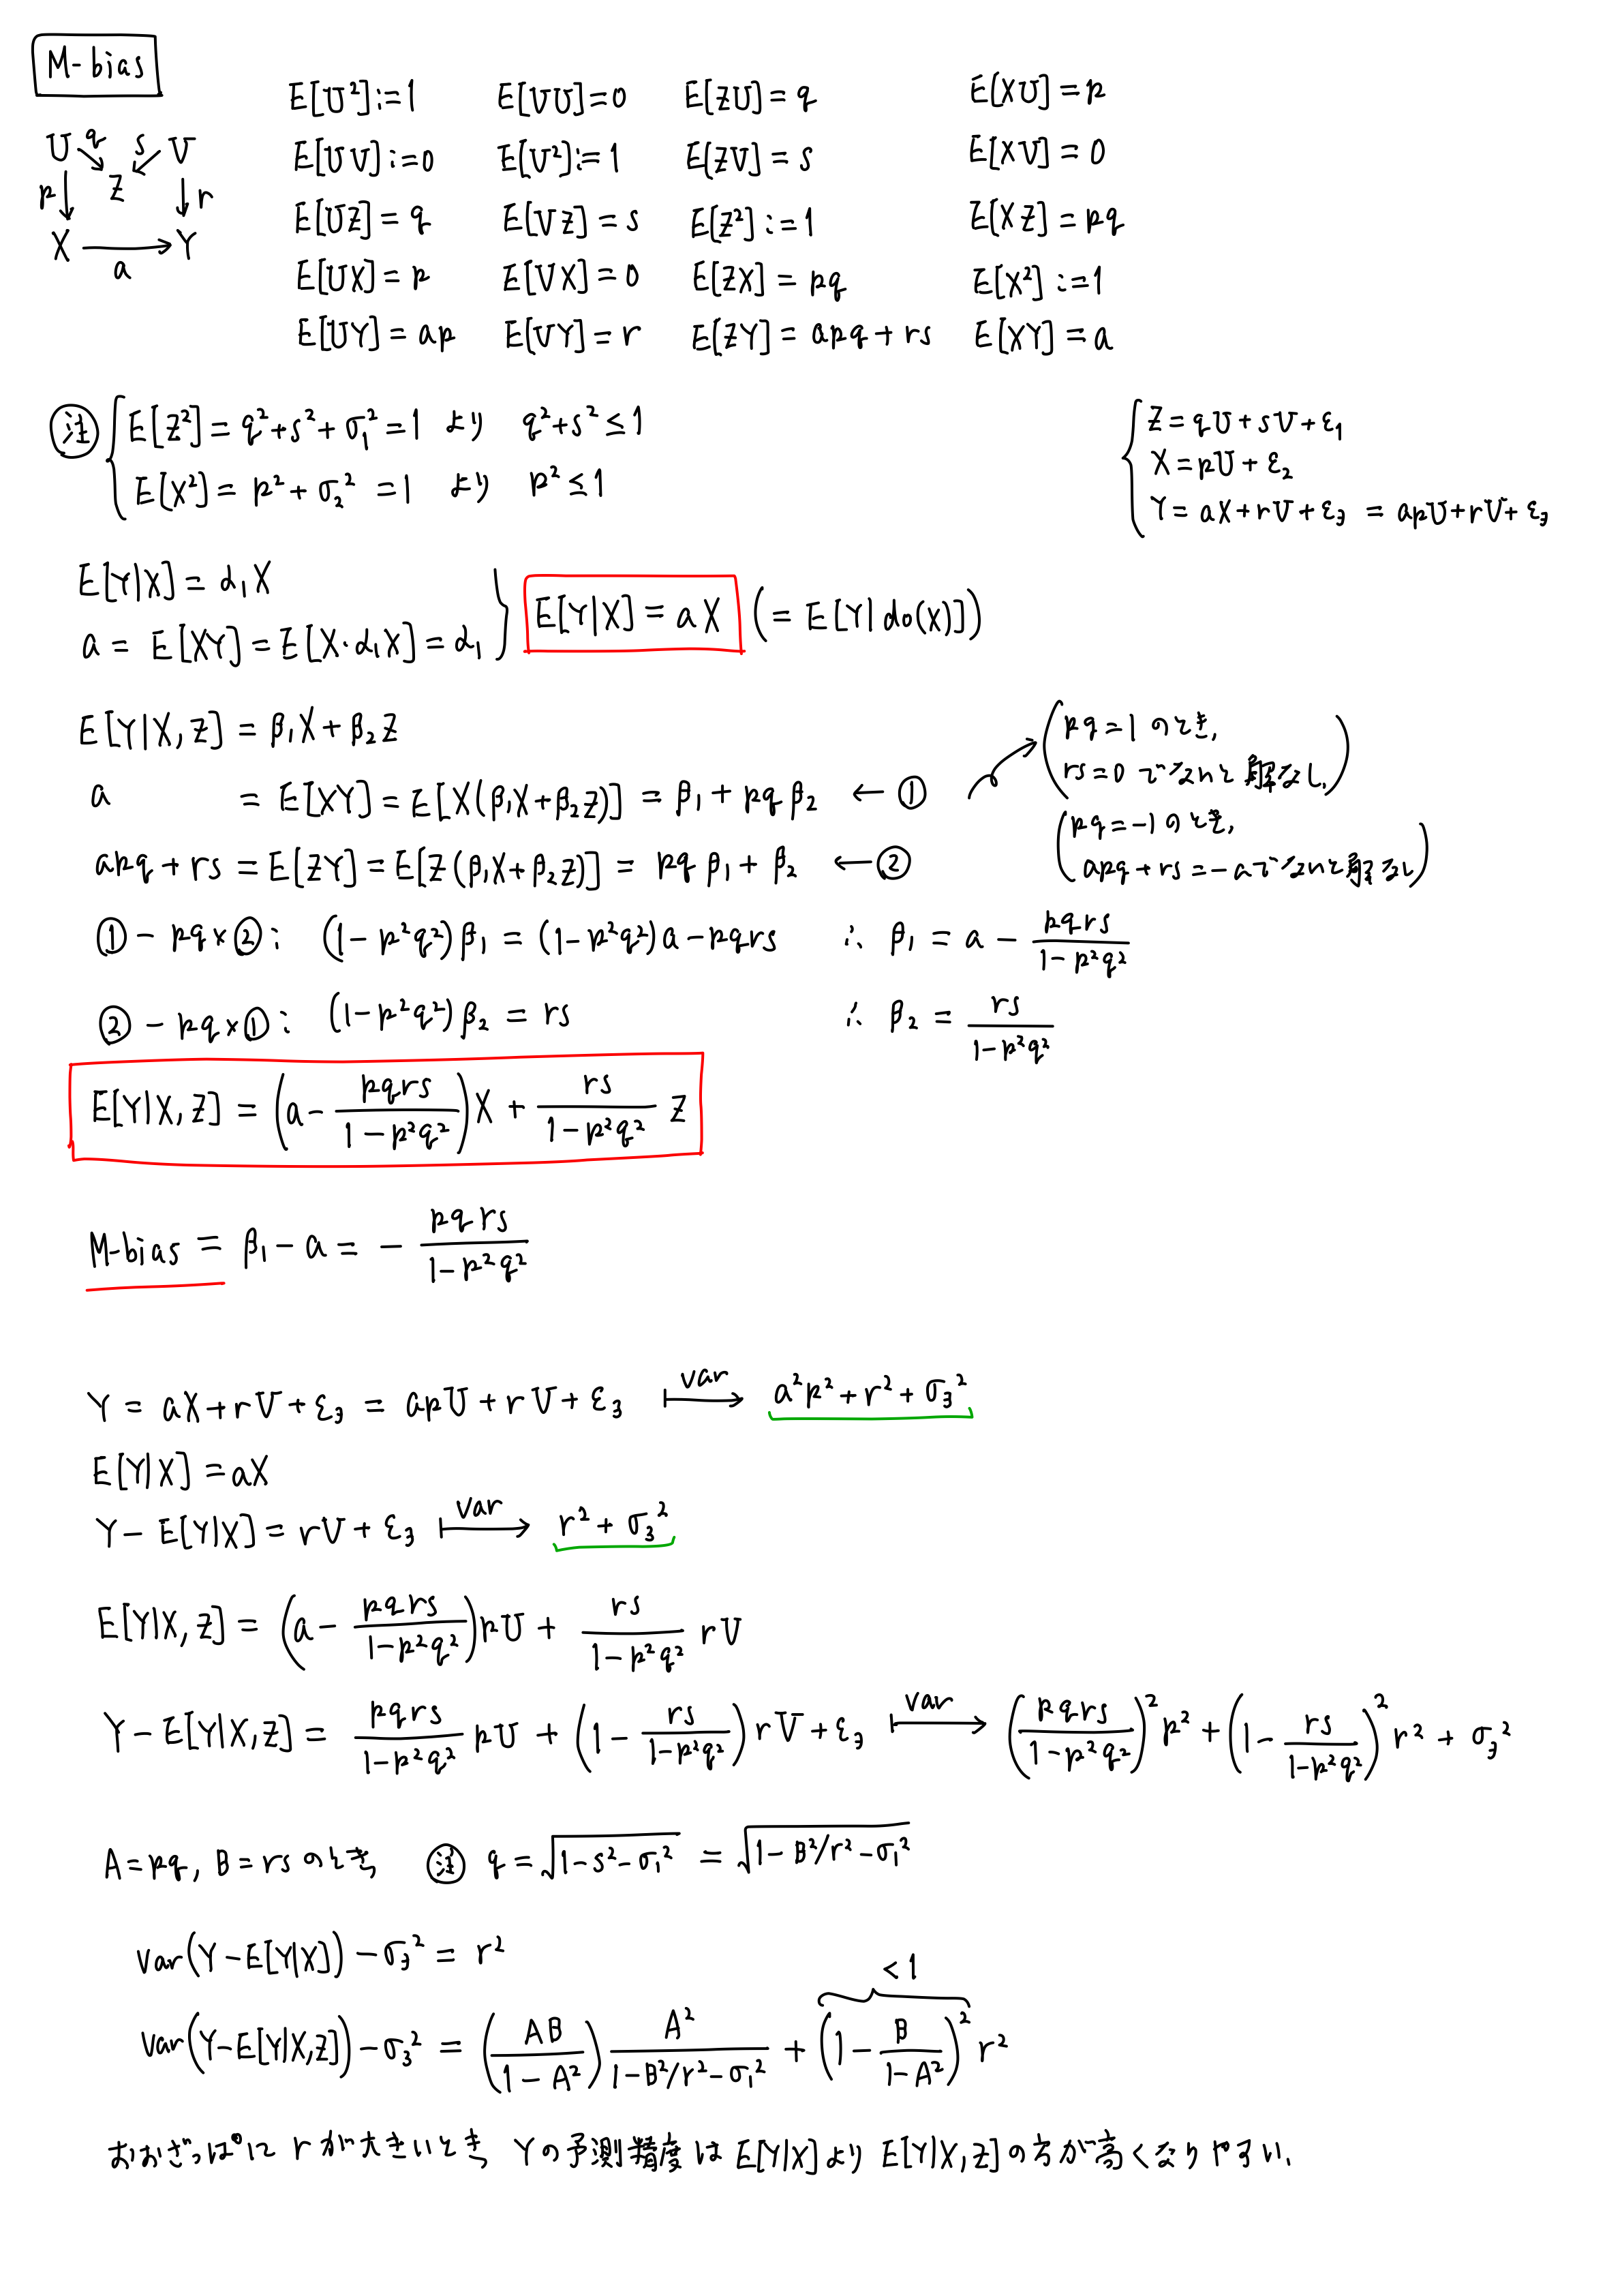 M-bias
U q s V
p Z r
X → Y
a
E[U²]:=1 E[VU]=0 E[ZU]=q E[XU]=p
E[UV]:=0 E[V²]:=1 E[ZV]=s E[XV]=0
E[UZ]=q E[VZ]=s E[Z²]:=1 E[XZ]=pq
E[UX]=p E[VX]=0 E[ZX]=pq E[X²]:=1
E[UY]=ap E[VY]=r E[ZY]=apq+rs E[XY]=a
注 E[Z²]=q²+s²+σ₁²=1 より q²+s²≤1
E[X²]=p²+σ₂²=1 より p²≤1
Z=qU+sV+ε₁
X=pU+ε₂
Y=aX+rV+ε₃ = apU+rV+ε₃
E[Y|X]=α₁X
a = E[XY]=E[X·α₁X]=α₁
E[Y|X]=aX (=E[Y|do(X)])
E[Y|X,Z] = β₁X+β₂Z
a = E[XY]=E[X(β₁X+β₂Z)] = β₁+pqβ₂ ← ①
apq+rs = E[ZY]=E[Z(β₁X+β₂Z)] = pqβ₁+β₂ ← ②
(pq=1 のとき,
rs=0 でないと解なし.)
(pq=-1 のとき,
apq+rs=-aでないと解なし)
①-pq×②: (1-p²q²)β₁=(1-p²q²)a-pqrs ∴ β₁ = a - pqrs/(1-p²q²)
②-pq×①: (1-p²q²)β₂ = rs ∴ β₂ = rs/(1-p²q²)
E[Y|X,Z] = (a - pqrs/(1-p²q²))X + rs/(1-p²q²) Z
M-bias = β₁-a = - pqrs/(1-p²q²)
Y = aX+rV+ε₃ = apU+rV+ε₃ ↦ var a²p²+r²+σ₃²
E[Y|X]=aX
Y-E[Y|X]=rV+ε₃ ↦ var r²+σ₃²
E[Y|X,Z] = (a - pqrs/(1-p²q²))pU + rs/(1-p²q²) rV
Y-E[Y|X,Z] = pqrs/(1-p²q²) pU + (1 - rs/(1-p²q²)) rV+ε₃ ↦ var (pqrs/(1-p²q²))²p² + (1 - rs/(1-p²q²))² r² + σ₃²
A=pq, B=rs のとき 注 q=√(1-s²-σ₁²) = √(1-B²/r²-σ₁²)
var(Y-E[Y|X])-σ₃² = r²
<1
var(Y-E[Y|X,Z])-σ₃² = (AB/(1-A²)) A²/(1-B²/r²-σ₁²) + (1 - B/(1-A²))² r²
おおざっぱに r が大きいとき Yの予測精度は E[Y|X]より E[Y|X,Z]の方が高くなりやすい.